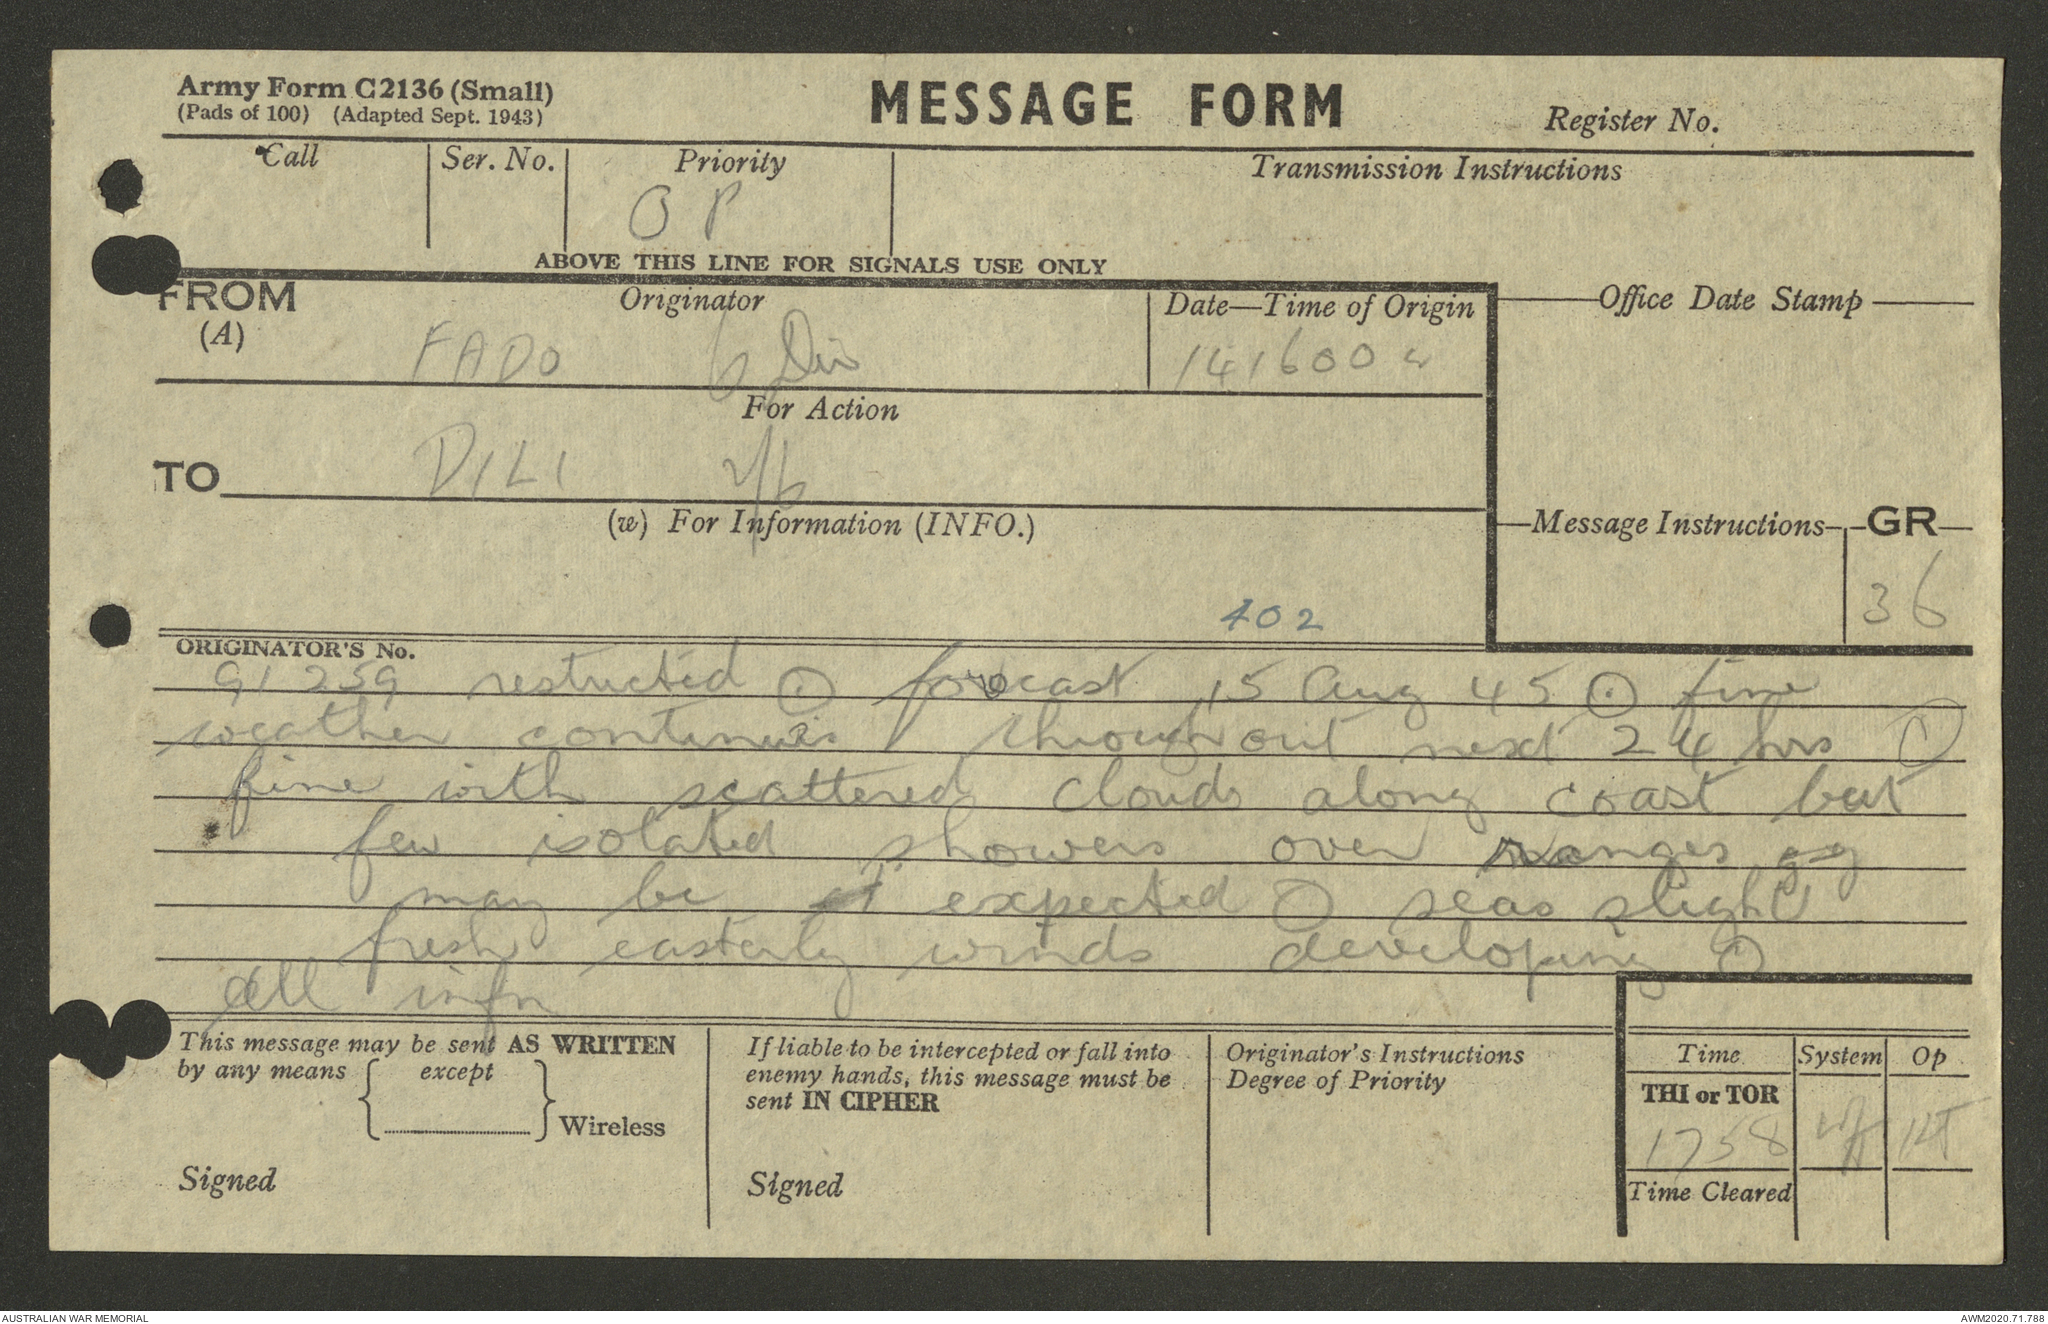 Army Form C2136 (Small)
(Pads of 100) (Adapted Sept. 1943)
MESSAGE FORM
Register No.
Call
Ser. No.
Priority
OP
Transmission Instructions
ABOVE THIS LINE FOR SIGNALS USE ONLY
FROM
(A)
Originator
FADO 6 Div
Date—Time of Origin
141600
Office Date Stamp
For Action
TO
DILI 2/6
(w) For Information (INFO.)
Message Instructions
GR
36
402
ORIGINATOR'S No.
G1259 restricted ⊙ forecast 15 Aug 45 ⊙ fine
weather continues throughout next 24 hrs ⊙
fine with scattered clouds along coast but
few isolated showers over ranges
may be expected ⊙ seas slight
fresh easterly winds developing ⊙
all infm
This message may be sent AS WRITTEN
by any means except
Wireless
Signed
If liable to be intercepted or fall into
enemy hands, this message must be
sent IN CIPHER
Signed
Originator's Instructions
Degree of Priority
Time
System
Op
THI or TOR
1758
Time Cleared
AUSTRALIAN WAR MEMORIAL
AWM2020.71.788